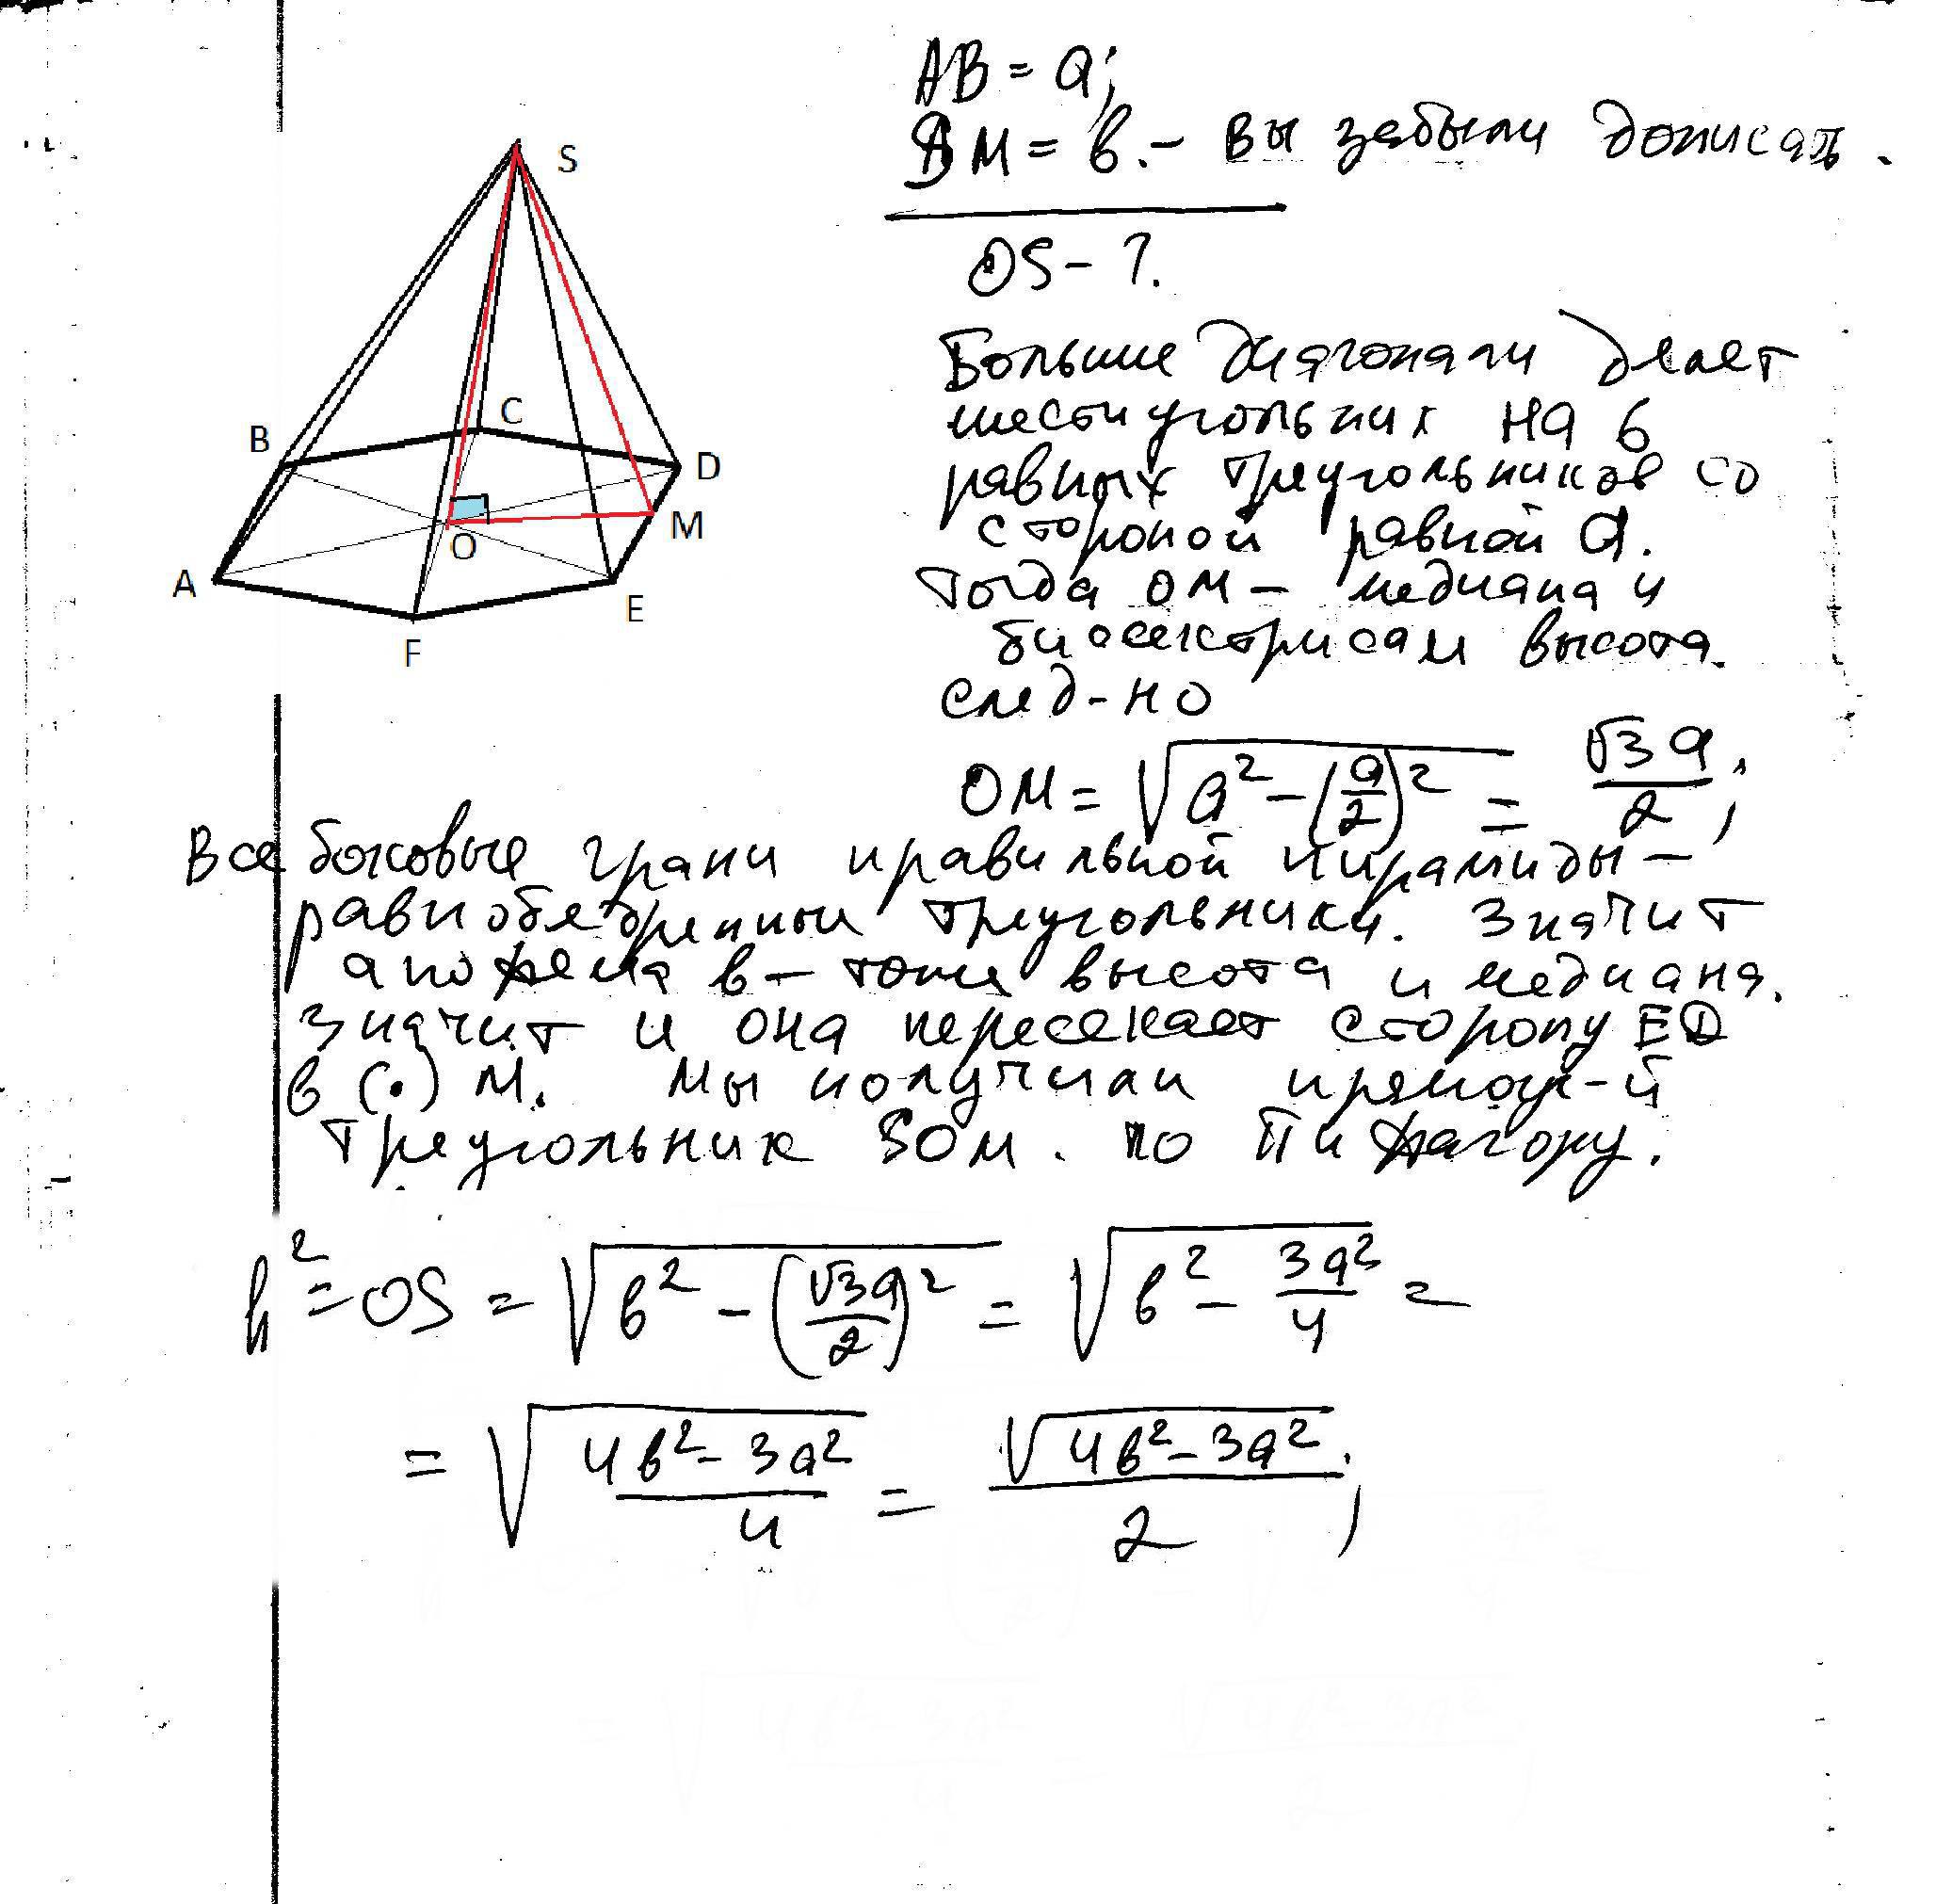 AB = a;
SM = в. - вы забыли дописать.
OS - ?.
S
B
C
D
M
O
A
E
F
Больше диагонали делает
шестиугольник на 6
равных треугольников со
стороной равной a.
Тогда OM - медиана и
биссектриса и высота.
след-но
OM = √(a² - (a/2)²) = √3a/2;
Все боковые грани правильной пирамиды -
равнобедренный треугольники. Значит
апофема в - тоже высота и медиана.
Значит и она пересекает сторону ED
в (·) M. Мы получили прямоуг-й
треугольник SOM. По Пифагору.
h² = OS = √(в² - (√3a/2)²) = √(в² - 3a²/4) =
= √((4в² - 3a²)/4) = √(4в² - 3a²)/2;